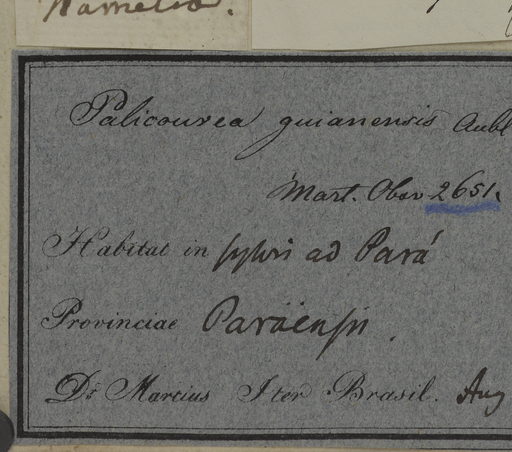 Hamelia.
Palicourea guianensis Aubl
Mart. Obs 2651.
Habitat in sylvis ad Pará
Provinciae Paraënsis.
Dr Martius Iter Brasil. Aug